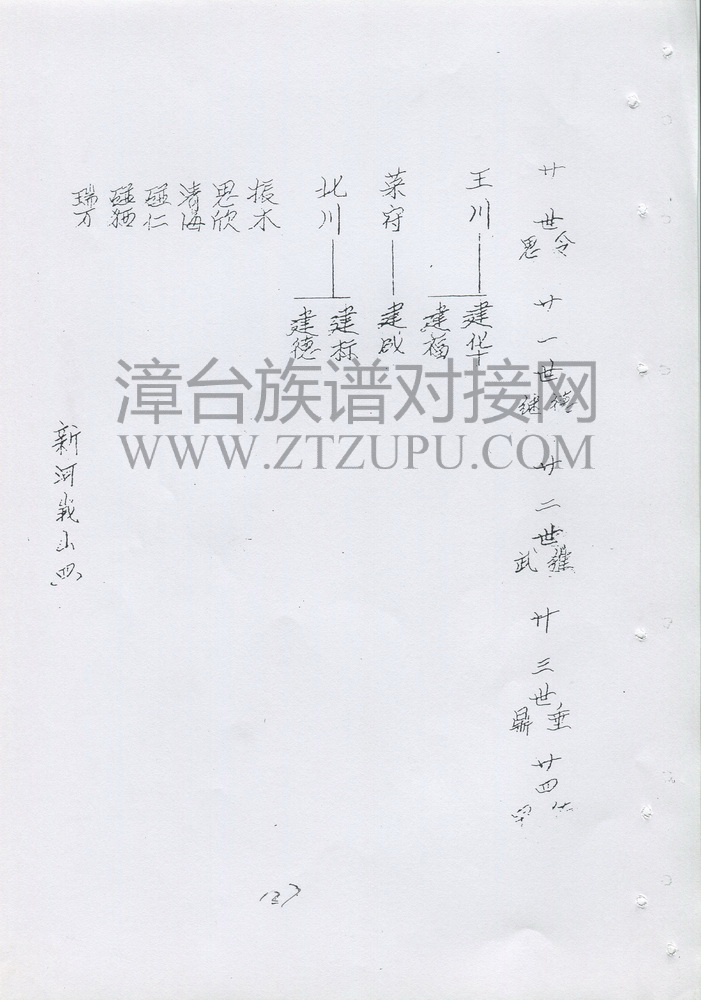 廿世
令
思
廿一世
德
继
廿二世
武
廿三世
垂
鼎
廿四
王川
建华
建福
菜府
建成
北川
建标
建德
振木
思欣
清海
碰仁
瑞万
新河
山
漳台族谱对接网
WWW.ZTZUPU.COM